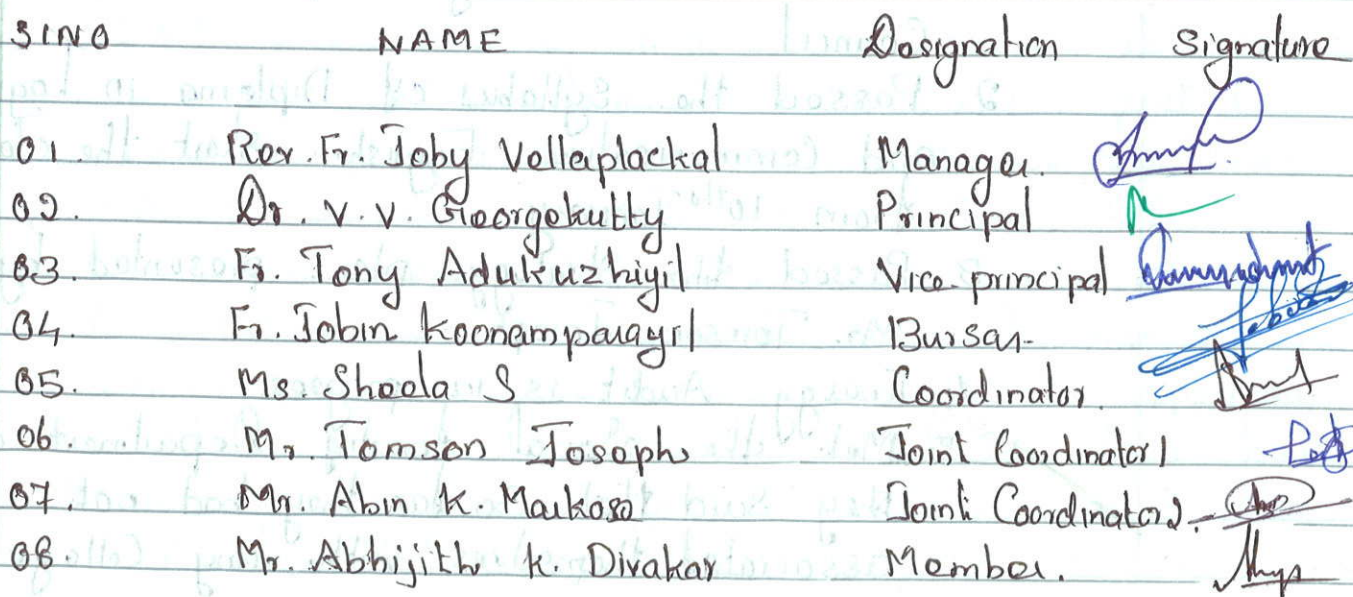 SINO NAME Designation Signature
01. Rev. Fr. Joby Vellaplackal Manager.
02. Dr. V. V. Georgekutty Principal
03. Fr. Tony Adukuzhiyil Vice principal
04. Fr. Jobin Koonamparayil Bursar
05. Ms. Sheela S Coordinator.
06 Mr. Tomson Joseph Joint Coordinator 1
07. Mr. Abin K. Markose Joint Coordinator 2.
08. Mr. Abhijith K. Divakar Member.